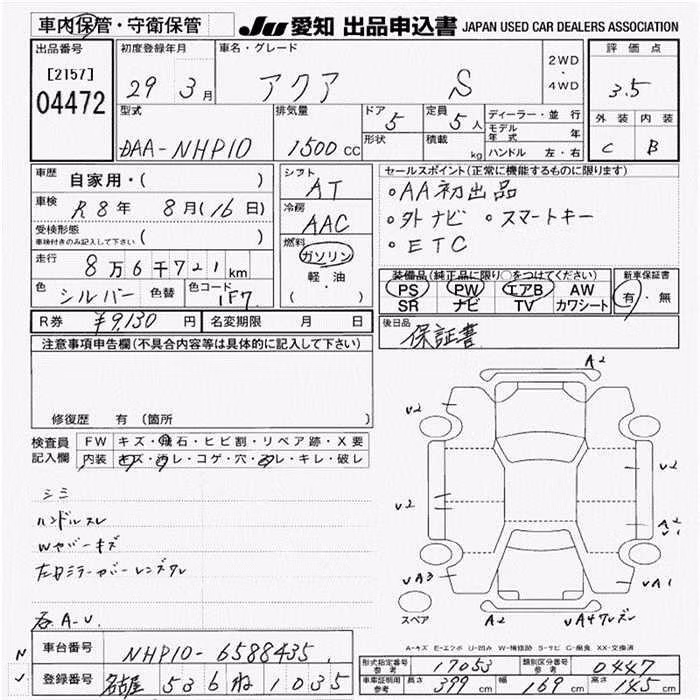 車内保管・守衛保管
JU 愛知 出品申込書 JAPAN USED CAR DEALERS ASSOCIATION
出品番号
[2157]
04472
初度登録年月
29 3月
車名・グレード
アクア S
2WD
・
4WD
評価点
3.5
外装 内装
C B
型式
DAA-NHP10
排気量
1500 CC
ドア 5
形状
定員 5人
積載 kg
ディーラー・並行
モデル年式 年
ハンドル 左・右
車歴 自家用・( )
車検 R8年 8月(16日)
受検形態
車検付きのみ記入して下さい ( )
走行 8万6千721km
色 シルバー 色替 色コード 1F7
シフト
AT
冷房
AAC
燃料
ガソリン
軽・油
( )
セールスポイント(正常に機能するものに限ります)
○AA初出品
○外ナビ ○スマートキー
○ETC
装備品(純正品に限り○をつけてください)
PS PW エアB AW
SR ナビ TV カワシート
新車保証書
有・無
R券 ¥9,130円 名変期限 月 日
後日品
保証書
注意事項申告欄(不具合内容等は具体的に記入して下さい)
修復歴 有(箇所 )
検査員
記入欄
FW キズ・飛石・ヒビ割・リペア跡・X要
内装 キズ・汚レ・コゲ・穴・スレ・キレ・破レ
シミ
ハンドルスレ
Wカバーキズ
左ミラーカバーレンズスレ
各A-U.
A2
U2
U2
U2
A2
U1
UA3
UA1
A2
UA4フレズレ
スペア
A-キズ E-エクボ U-凹み W-補修跡 S-サビ C-腐食 XX-交換済
車台番号 NHP10-6588435
登録番号 名古屋 536 ね 1035
N
J
形式指定番号
参考 17053
類別区分番号
参考 0447
車車証明用
参考 長さ 399 cm 幅 169 cm 高さ 145 cm